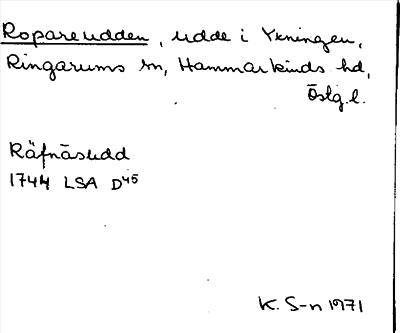 Ropareudden, udde i Yxningen,
Ringarums sn, Hammarkinds hd,
Östg.l.
Räfnäsudd
1744 LSA D45
K. S-n 1971